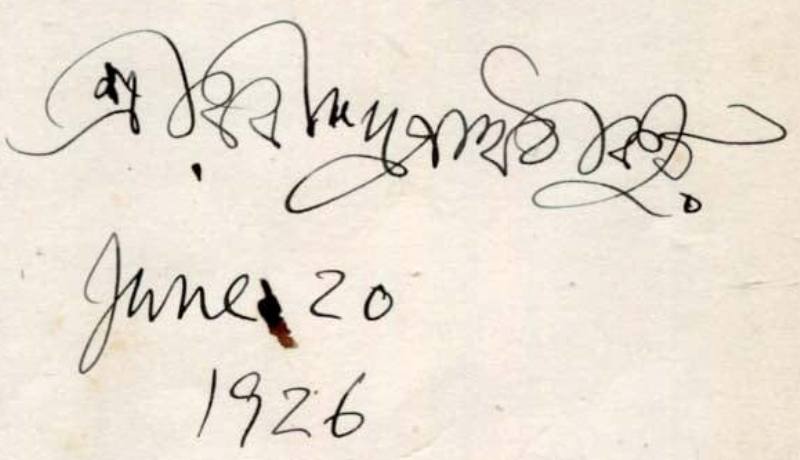 শ্রীরবীন্দ্রনাথ ঠাকুর
June 20
1926